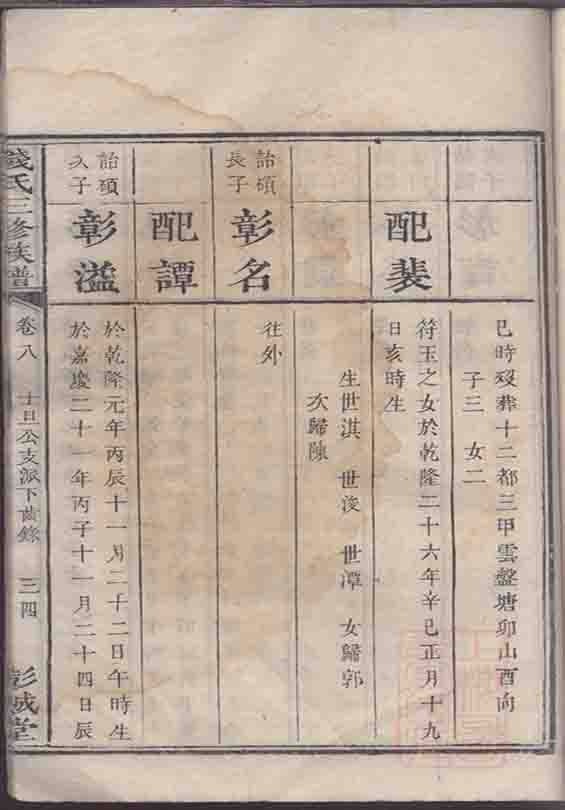 巳時歿葬十二都三甲雲盤塘卯山酉向
子三 女二
配裴
符玉之女於乾隆二十六年辛巳正月十九
日亥時生
生世淇 世浚 世潭 女歸郭
次歸陳
詒碩
長子
彰名
往外
配譚
詒碩
次子
彰溢
於乾隆元年丙辰十一月二十二日午時生
於嘉慶二十一年丙子十一月二十四日辰
錢氏三修族譜
卷八
士旦公支派下齒錄
三四
彭城堂